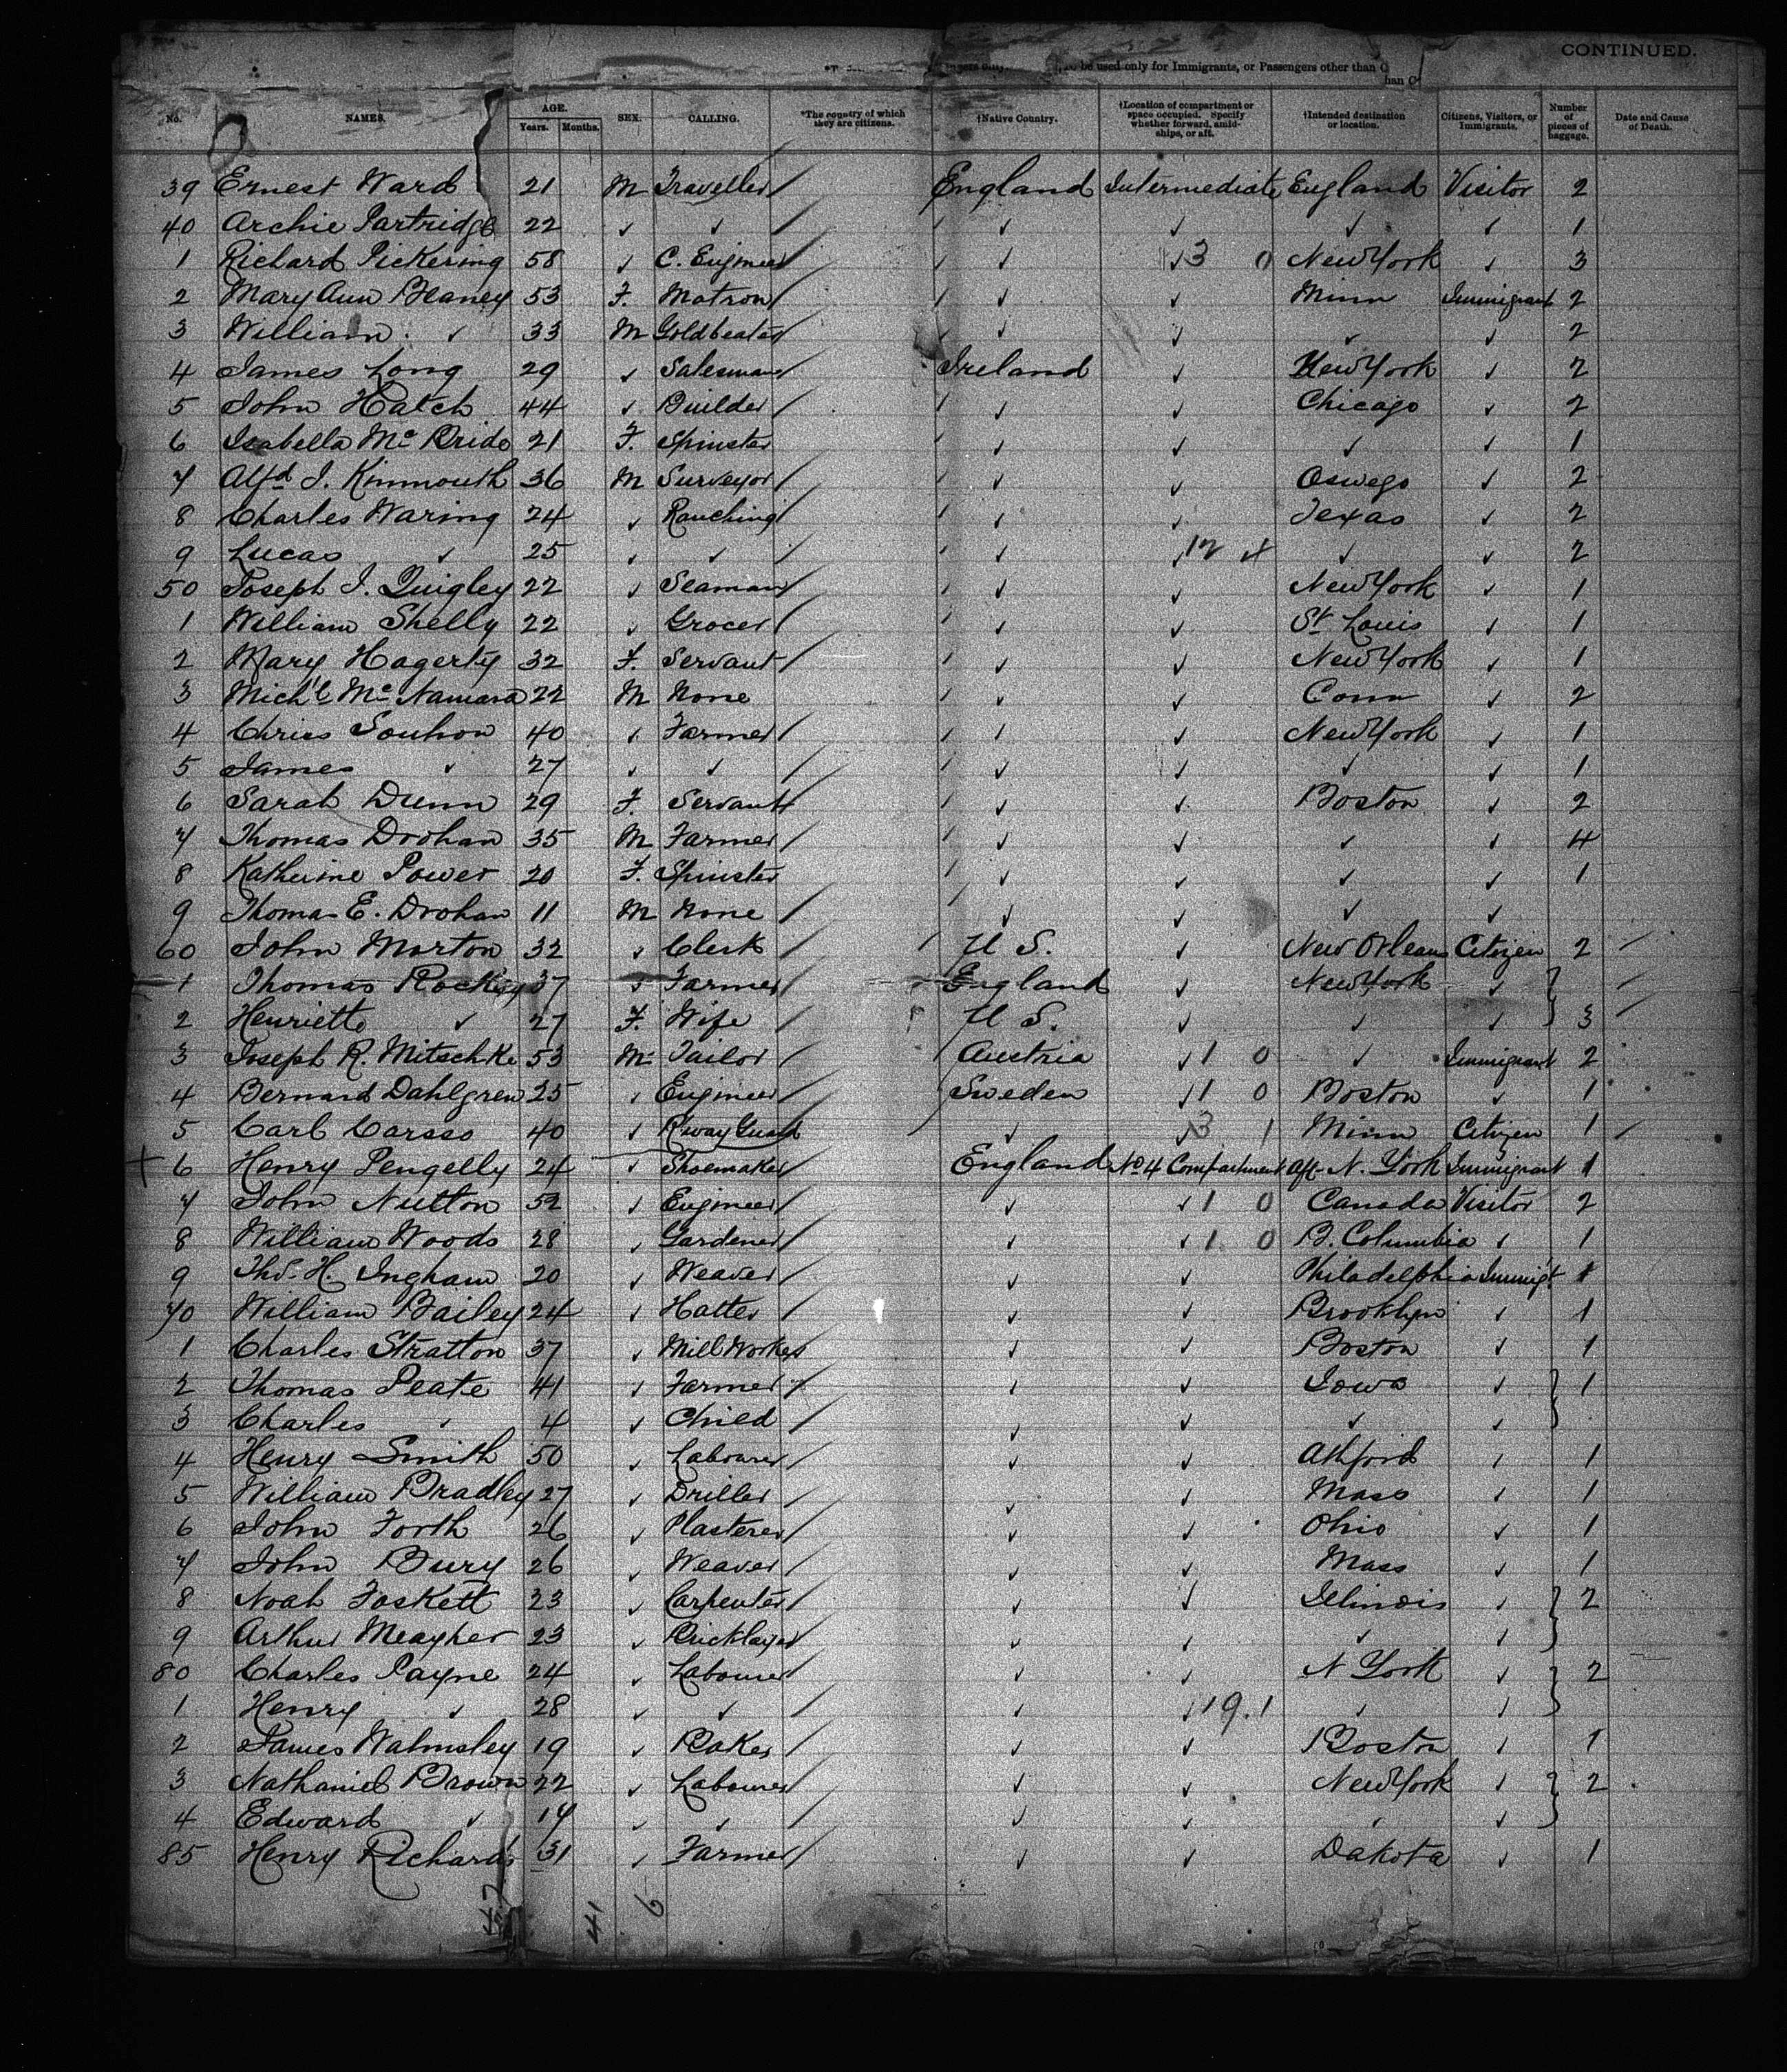 CONTINUED.
be used only for Immigrants, or Passengers other than C
han C
No. NAMES. AGE. Years. Months. SEX. CALLING. *The country of which they are citizens. †Native Country. †Location of compartment or space occupied. Specify whether forward, amidships, or aft. †Intended destination or location. Citizens, Visitors, or Immigrants. Number of pieces of baggage. Date and Cause of Death.
39 Ernest Ward 21 M Traveller / England Intermediate England Visitor 2
40 Archie Partridge 22 ✓ ✓ / ✓ ✓ ✓ ✓ 1
1 Richard Pickering 58 ✓ C. Engineer / ✓ ✓ 3 0 New York ✓ 3
2 Mary Ann Blaney 53 F. Matron / ✓ ✓ Minn Immigrant 2
3 William ✓ 33 M Goldbeater / ✓ ✓ ✓ ✓ 2
4 James Long 29 ✓ Salesman / Ireland ✓ New York ✓ 2
5 John Hatch 44 ✓ Builder / ✓ ✓ Chicago ✓ 2
6 Isabella McBride 21 F. Spinster ✓ ✓ ✓ ✓ 1
7 Alfd J. Kinmouth 36 M Surveyor / ✓ ✓ Oswego ✓ 2
8 Charles Waring 24 ✓ Ranching / ✓ ✓ Texas ✓ 2
9 Lucas ✓ 25 ✓ ✓ / ✓ ✓ 12 4 ✓ ✓ 2
50 Joseph J. Quigley 22 ✓ Seaman / ✓ ✓ New York ✓ 1
1 William Shelly 22 ✓ Grocer / ✓ ✓ St Louis ✓ 1
2 Mary Hagerty 32 F. Servant / ✓ ✓ New York ✓ 1
3 Mich'l McNamara 22 M None ✓ ✓ Conn ✓ 2
4 Chriss Souhon 40 ✓ Farmer / ✓ ✓ New York ✓ 1
5 James ✓ 27 ✓ ✓ / ✓ ✓ ✓ ✓ 1
6 Sarah Dunn 29 F. Servant / ✓ ✓ Boston ✓ 2
7 Thomas Drohan 35 M Farmer / ✓ ✓ ✓ ✓ 4
8 Katherine Power 20 F. Spinster ✓ ✓ ✓ ✓ 1
9 Thomas E. Drohan 11 M None / ✓ ✓ ✓ ✓
60 John Morton 32 ✓ Clerk / U S. ✓ New Orleans Citizen 2
1 Thomas 37 ✓ Farmer / England ✓ New York ✓ }
2 Henriette ✓ 27 F. Wife / U S. ✓ ✓ ✓ } 3
3 Joseph R. Mitschke 53 M Tailor / Austria ✓ 1 0 ✓ Immigrant 2
4 Bernard Dahlgren 25 ✓ Engineer / Sweden ✓ 1 0 Boston ✓ 1
5 Carl Carsso 40 ✓ Rway Guard ✓ ✓ 3 1 Minn Citizen 1
6 Henry Pengelly 24 ✓ Shoemaker / England No 4 Compartment Aft. N. York Immigrant 1
7 John Nutton 52 ✓ Engineer / ✓ ✓ 1 0 Canada Visitor 2
8 William Woods 28 ✓ Gardener / ✓ ✓ 1 0 B. Columbia ✓ 1
9 Thos. H. Ingham 20 ✓ Weaver / ✓ ✓ Philadelphia Immigt 1
70 William Bailey 24 ✓ Hatter / ✓ ✓ Brooklyn ✓ 1
1 Charles Stratton 37 ✓ Mill Worker ✓ ✓ Boston ✓ 1
2 Thomas Peate 41 ✓ Farmer / ✓ ✓ Iowa ✓ } 1
3 Charles ✓ 4 ✓ Child / ✓ ✓ ✓ ✓ }
4 Henry Smith 50 ✓ Labourer / ✓ ✓ Ashford ✓ 1
5 William Bradley 27 ✓ Driller / ✓ ✓ Mass ✓ 1
6 John Forth 26 ✓ Plasterer / ✓ ✓ Ohio ✓ 1
7 John Bury 26 ✓ Weaver / ✓ ✓ Mass ✓ 1
8 Noah Foskett 23 ✓ Carpenter / ✓ ✓ Illinois ✓ } 2
9 Arthur Meagher 23 ✓ Bricklayer / ✓ ✓ ✓ ✓ }
80 Charles Payne 24 ✓ Labourer / ✓ ✓ N York ✓ } 2
1 Henry ✓ 28 ✓ ✓ / ✓ ✓ 19.1 ✓ ✓ }
2 James Walmsley 19 ✓ Baker / ✓ ✓ Boston ✓ 1
3 Nathaniel Brown 22 ✓ Labourer / ✓ ✓ New York ✓ } 2
4 Edward ✓ ✓ ✓ / ✓ ✓ ✓ ✓ }
85 Henry Richards 31 ✓ Farmer / ✓ ✓ Dakota ✓ 1
47 41 6